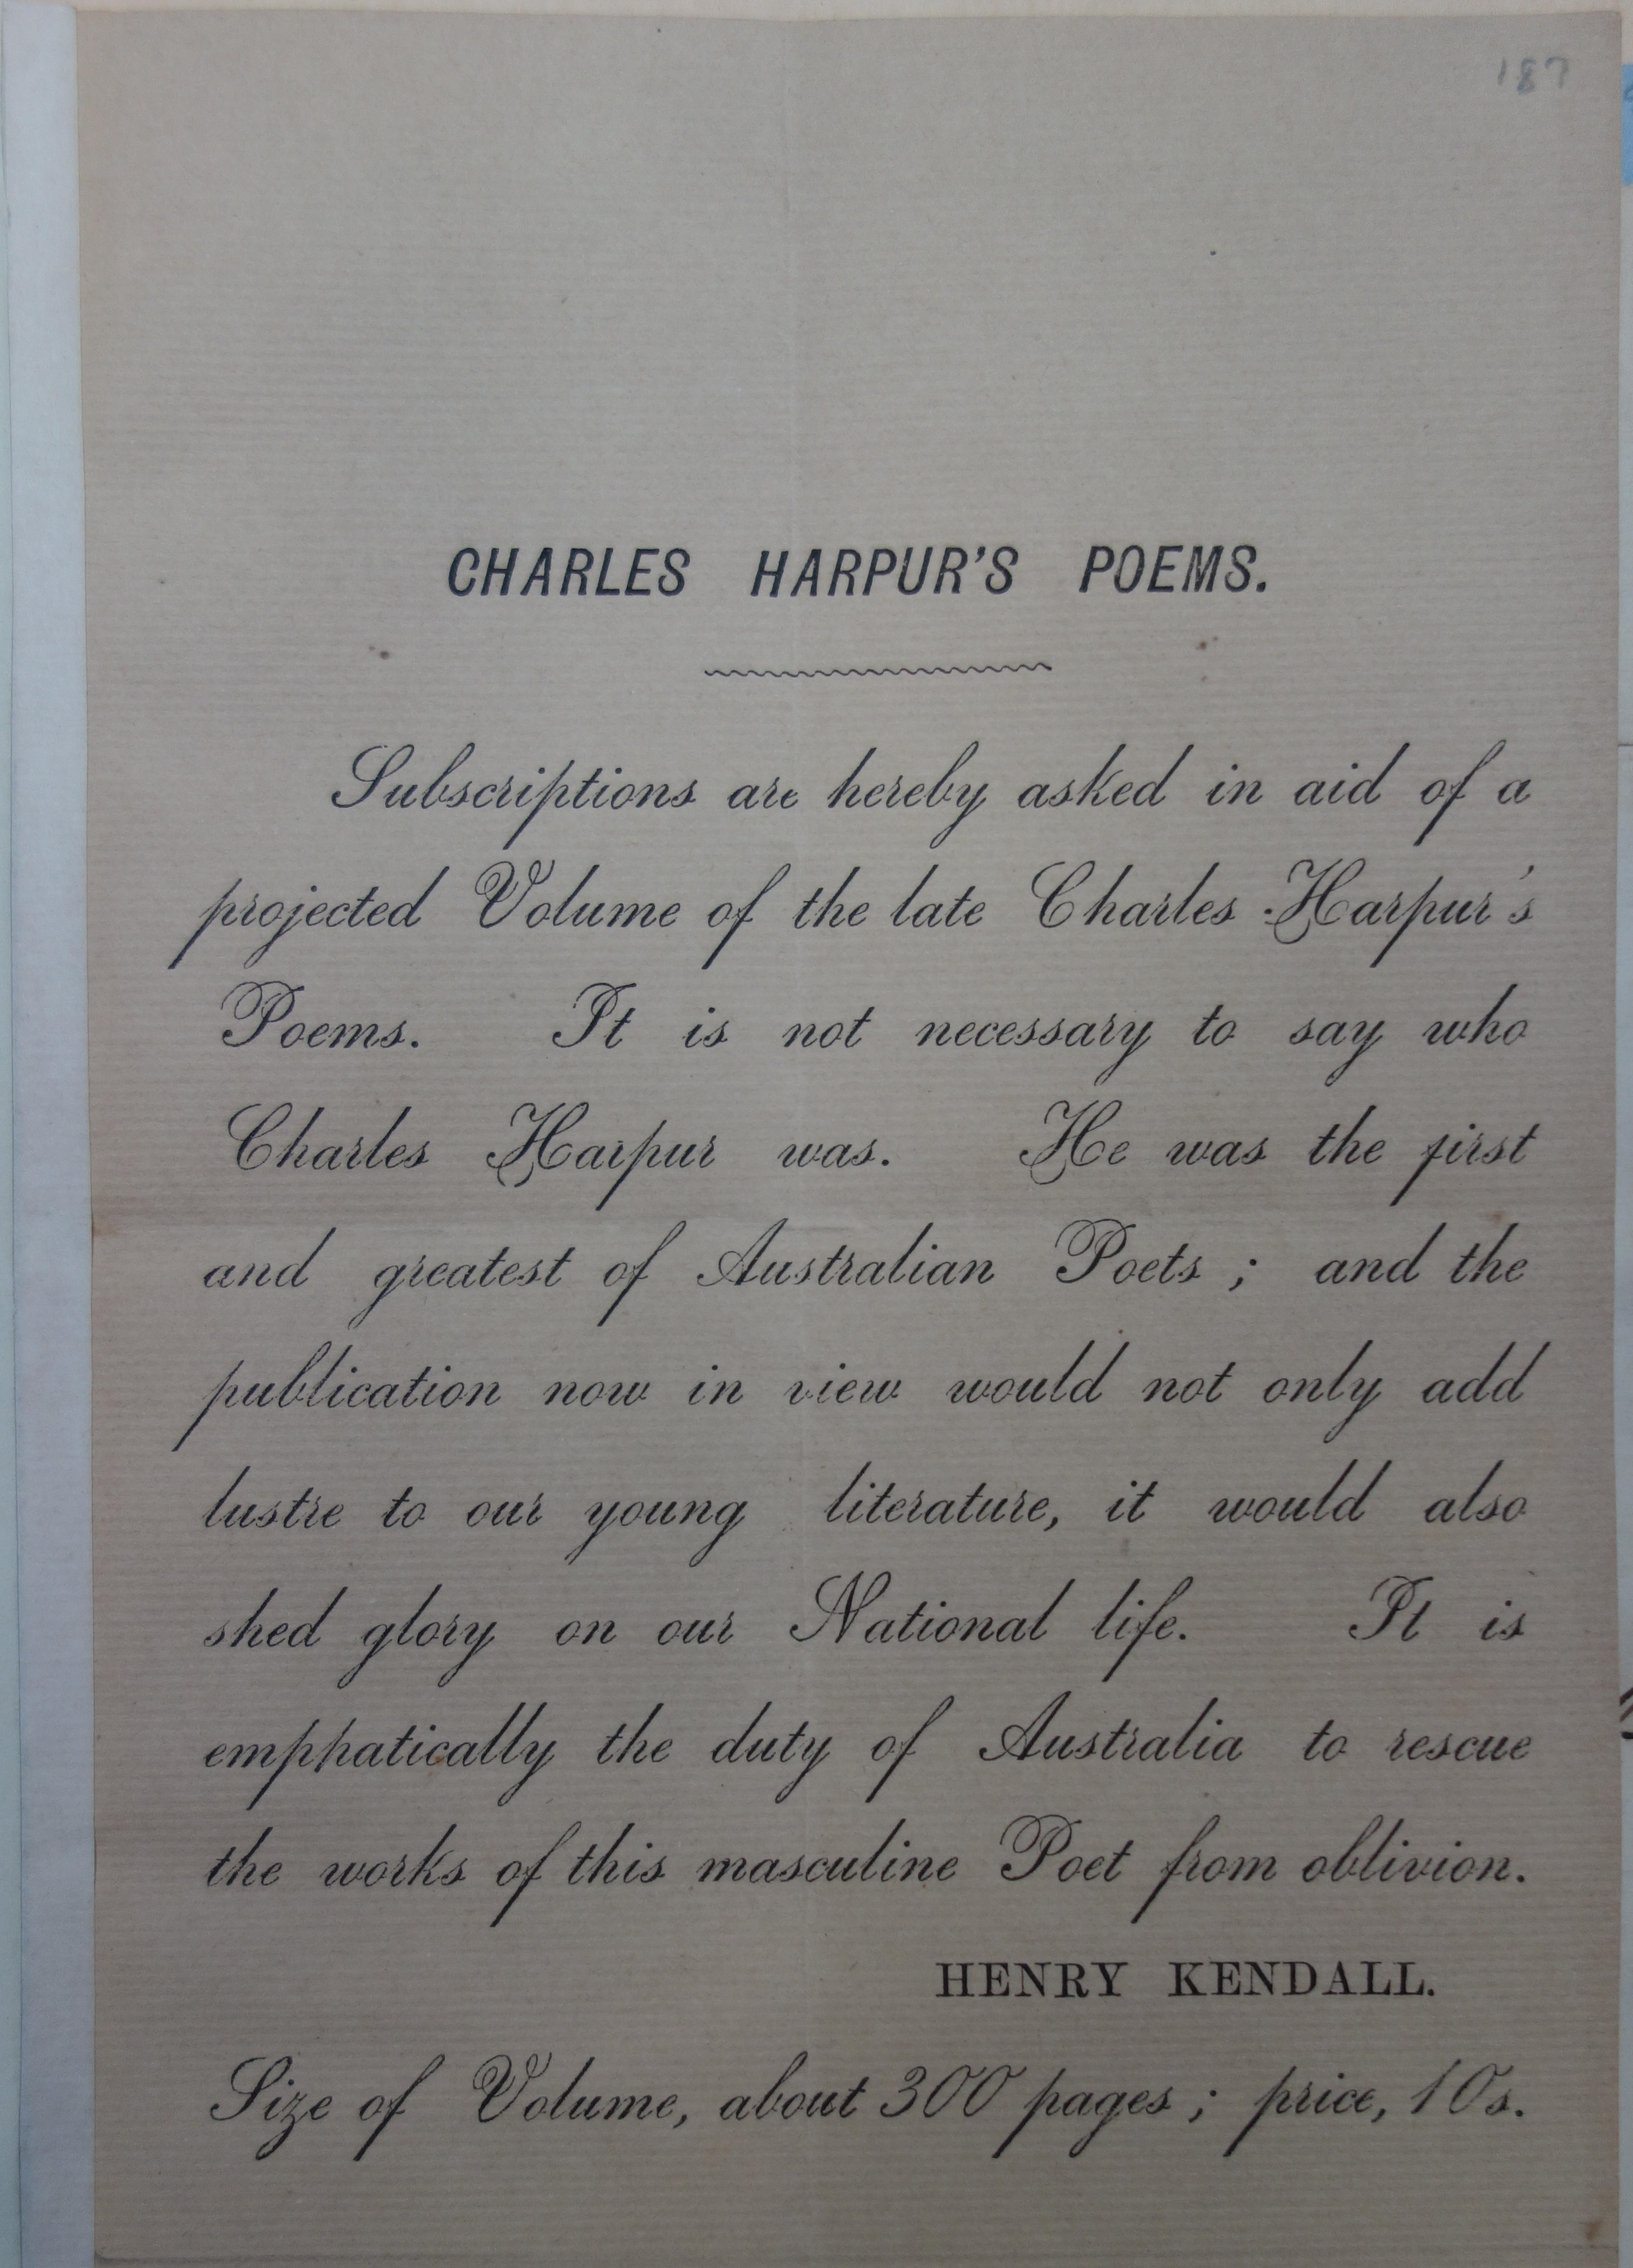 187
CHARLES HARPUR'S POEMS.
Subscriptions are hereby asked in aid of a
projected Volume of the late Charles Harpur's
Poems. It is not necessary to say who
Charles Harpur was. He was the first
and greatest of Australian Poets ; and the
publication now in view would not only add
lustre to our young literature, it would also
shed glory on our National life. It is
emphatically the duty of Australia to rescue
the works of this masculine Poet from oblivion.
HENRY KENDALL.
Size of Volume, about 300 pages ; price, 10s.